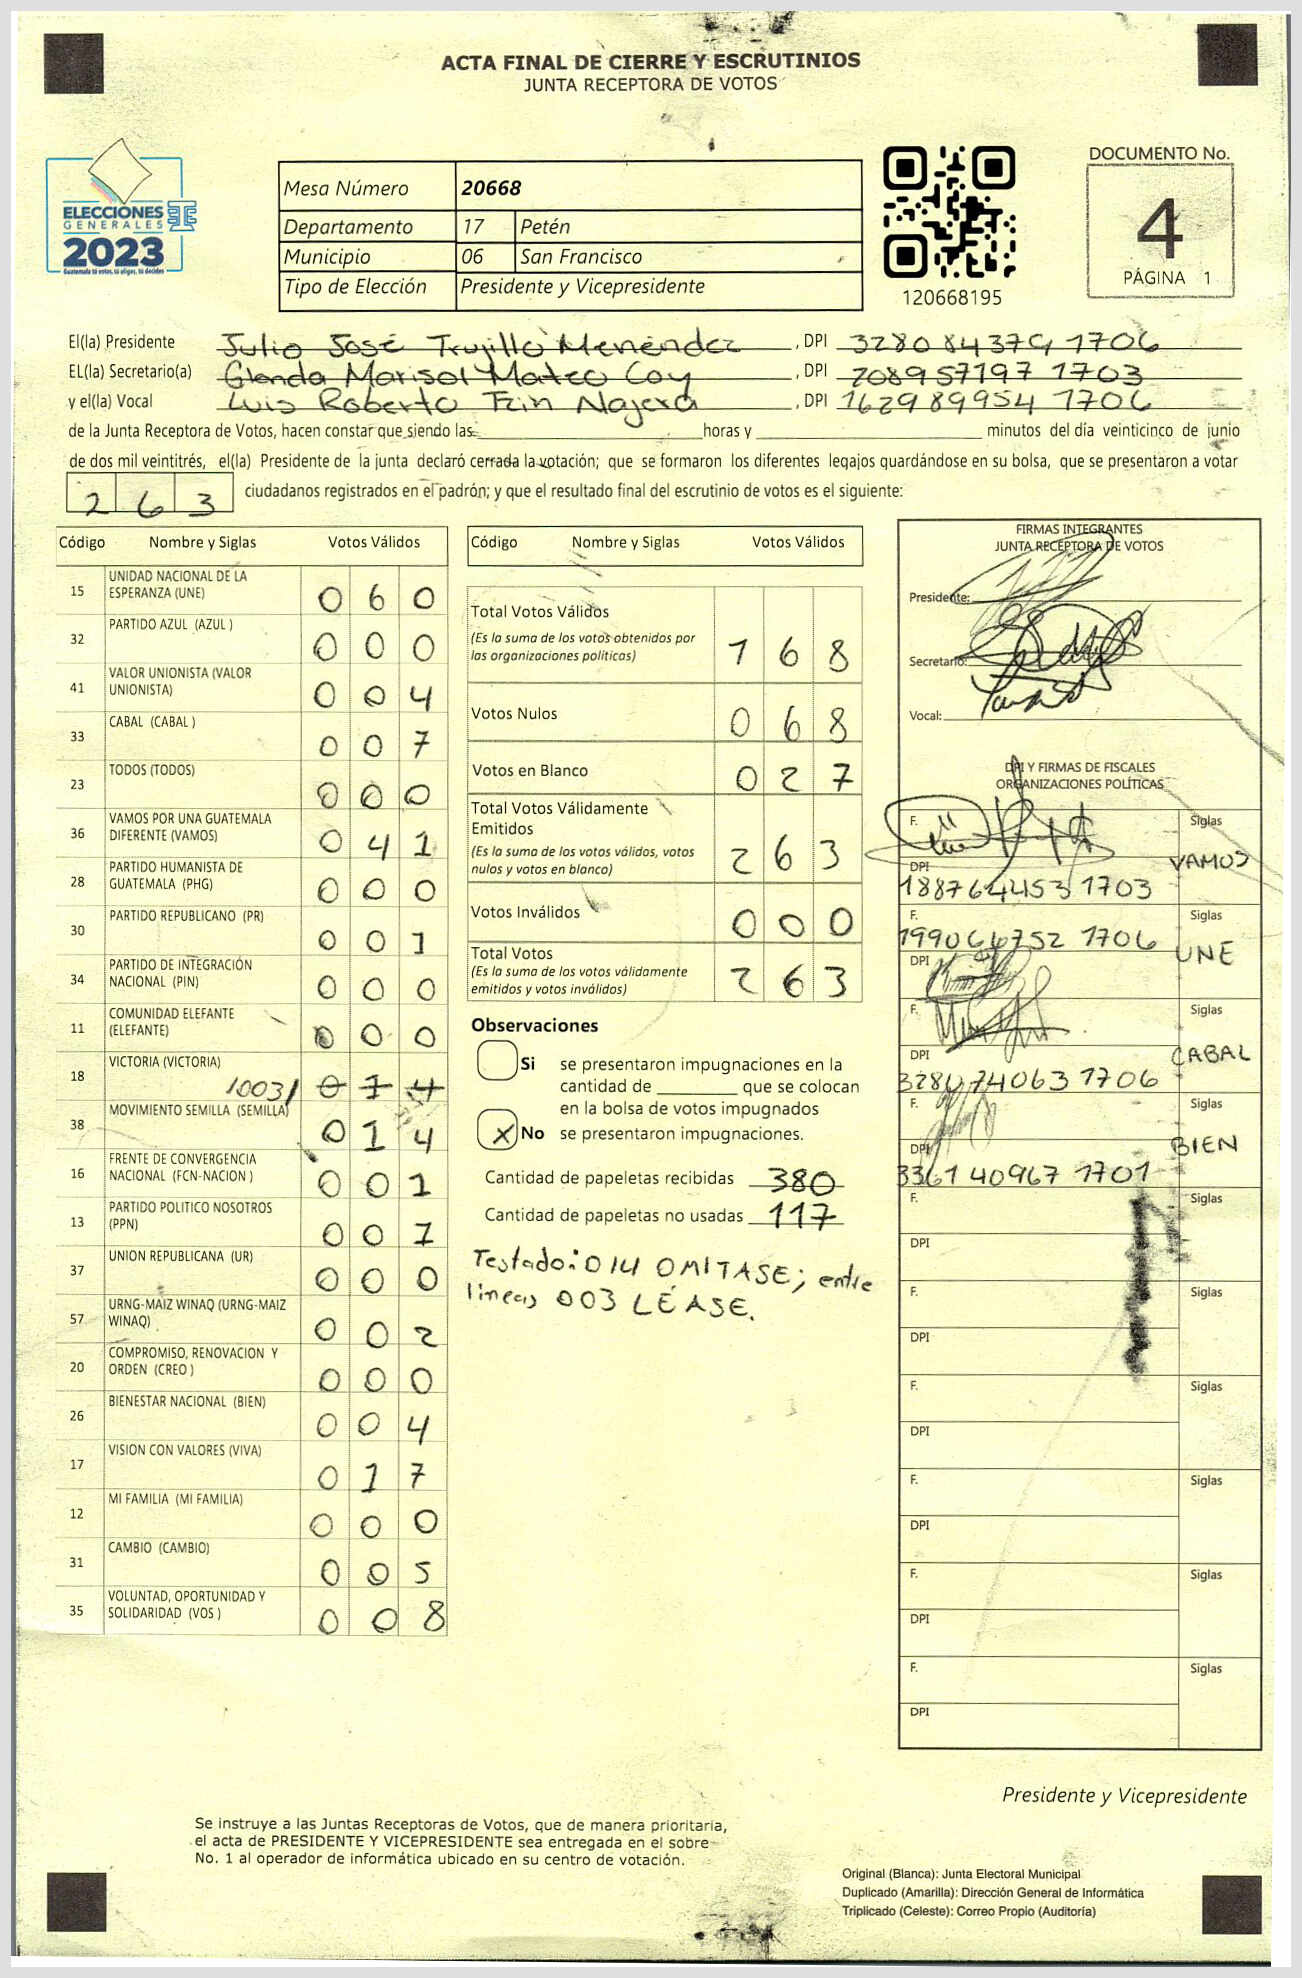 ACTA FINAL DE CIERRE Y ESCRUTINIOS
JUNTA RECEPTORA DE VOTOS
ELECCIONES
GENERALES
2023
Guatemala tú votas, tú eliges, tú decides
Mesa Número 20668
Departamento 17 Petén
Municipio 06 San Francisco
Tipo de Elección Presidente y Vicepresidente
120668195
DOCUMENTO No.
4
PÁGINA 1
El(la) Presidente Julio José Trujillo Menéndez, DPI 328084379 1706
EL(la) Secretario(a) Glenda Marisol Mateo Coy, DPI 208957197 1703
y el(la) Vocal Luis Roberto Tzin Najera, DPI 162989954 1706
de la Junta Receptora de Votos, hacen constar que siendo las horas y minutos del día veinticinco de junio
de dos mil veintitrés, el(la) Presidente de la junta declaró cerrada la votación; que se formaron los diferentes legajos guardándose en su bolsa, que se presentaron a votar
263 ciudadanos registrados en el padrón; y que el resultado final del escrutinio de votos es el siguiente:
Código Nombre y Siglas Votos Válidos
15 UNIDAD NACIONAL DE LA ESPERANZA (UNE) 060
32 PARTIDO AZUL (AZUL ) 000
41 VALOR UNIONISTA (VALOR UNIONISTA) 004
33 CABAL (CABAL ) 007
23 TODOS (TODOS) 000
36 VAMOS POR UNA GUATEMALA DIFERENTE (VAMOS) 041
28 PARTIDO HUMANISTA DE GUATEMALA (PHG) 000
30 PARTIDO REPUBLICANO (PR) 001
34 PARTIDO DE INTEGRACIÓN NACIONAL (PIN) 000
11 COMUNIDAD ELEFANTE (ELEFANTE) 000
18 VICTORIA (VICTORIA) /003/ 014
38 MOVIMIENTO SEMILLA (SEMILLA) 014
16 FRENTE DE CONVERGENCIA NACIONAL (FCN-NACION ) 001
13 PARTIDO POLITICO NOSOTROS (PPN) 001
37 UNION REPUBLICANA (UR) 000
57 URNG-MAIZ WINAQ (URNG-MAIZ WINAQ) 002
20 COMPROMISO, RENOVACION Y ORDEN (CREO ) 000
26 BIENESTAR NACIONAL (BIEN) 004
17 VISION CON VALORES (VIVA) 017
12 MI FAMILIA (MI FAMILIA) 000
31 CAMBIO (CAMBIO) 005
35 VOLUNTAD, OPORTUNIDAD Y SOLIDARIDAD (VOS ) 008
Código Nombre y Siglas Votos Válidos
Total Votos Válidos 168
(Es la suma de los votos obtenidos por
las organizaciones políticas)
Votos Nulos 068
Votos en Blanco 027
Total Votos Válidamente
Emitidos 263
(Es la suma de los votos válidos, votos
nulos y votos en blanco)
Votos Inválidos 000
Total Votos 263
(Es la suma de los votos válidamente
emitidos y votos inválidos)
Observaciones
Si se presentaron impugnaciones en la
cantidad de que se colocan
en la bolsa de votos impugnados
X No se presentaron impugnaciones.
Cantidad de papeletas recibidas 380
Cantidad de papeletas no usadas 117
Testado: 014 OMITASE; entre
lineas 003 LÉASE.
FIRMAS INTEGRANTES
JUNTA RECEPTORA DE VOTOS
Presidente:
Secretario:
Vocal:
DPI Y FIRMAS DE FISCALES
ORGANIZACIONES POLÍTICAS
F. Siglas
VAMOS
DPI
188764453 1703
F. Siglas
199064752 1706
UNE
DPI
F. Siglas
CABAL
DPI
328074063 1706
F. Siglas
BIEN
DPI
336140967 1701
F. Siglas
DPI
F. Siglas
DPI
F. Siglas
DPI
F. Siglas
DPI
F. Siglas
DPI
F. Siglas
DPI
Presidente y Vicepresidente
Se instruye a las Juntas Receptoras de Votos, que de manera prioritaria,
el acta de PRESIDENTE Y VICEPRESIDENTE sea entregada en el sobre
No. 1 al operador de informática ubicado en su centro de votación.
Original (Blanca): Junta Electoral Municipal
Duplicado (Amarilla): Dirección General de Informática
Triplicado (Celeste): Correo Propio (Auditoría)